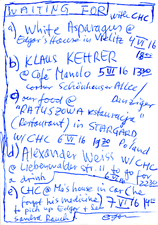 WAITING FOR
(with CHC)
a) White Asparagus @
Edgar's House in Velite 4 VI 16
b) KLAUS KETHRER
@ Café Manolo 5 VI 16 1300
corner Schönhauser Allee /
c) our food @
"RATUSZOWA restauracja"
(Restaurant) in STARGARD
w/CHC 6 VI 16 1930 Poland
d) Alexander Weiss w/CHC
@ Liebenwalder St. 11 to go for
a drink
e) CHC @ Ma's house in car (he
forgot his medicine) 7 VI 16
to pick up Edgar + see
Sandra Rauch